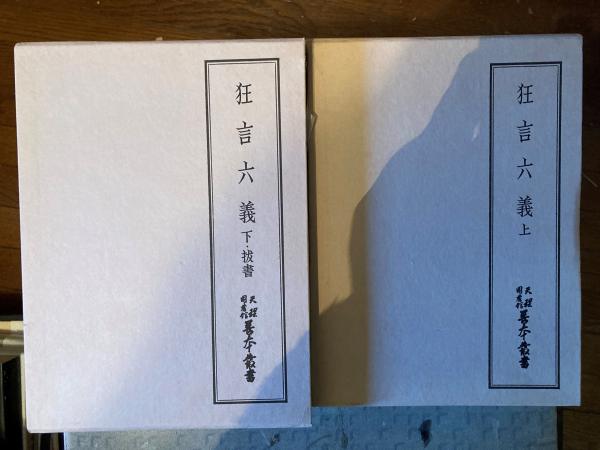 狂言六義上
天理
図書館
善本叢書
狂言六義下・抜書
天理
図書館
善本叢書